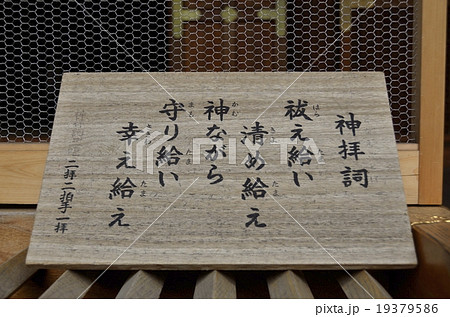 神拝詞
祓え給い
清め給え
神ながら
守り給い
幸え給え
二拝二拍手一拝
19379586